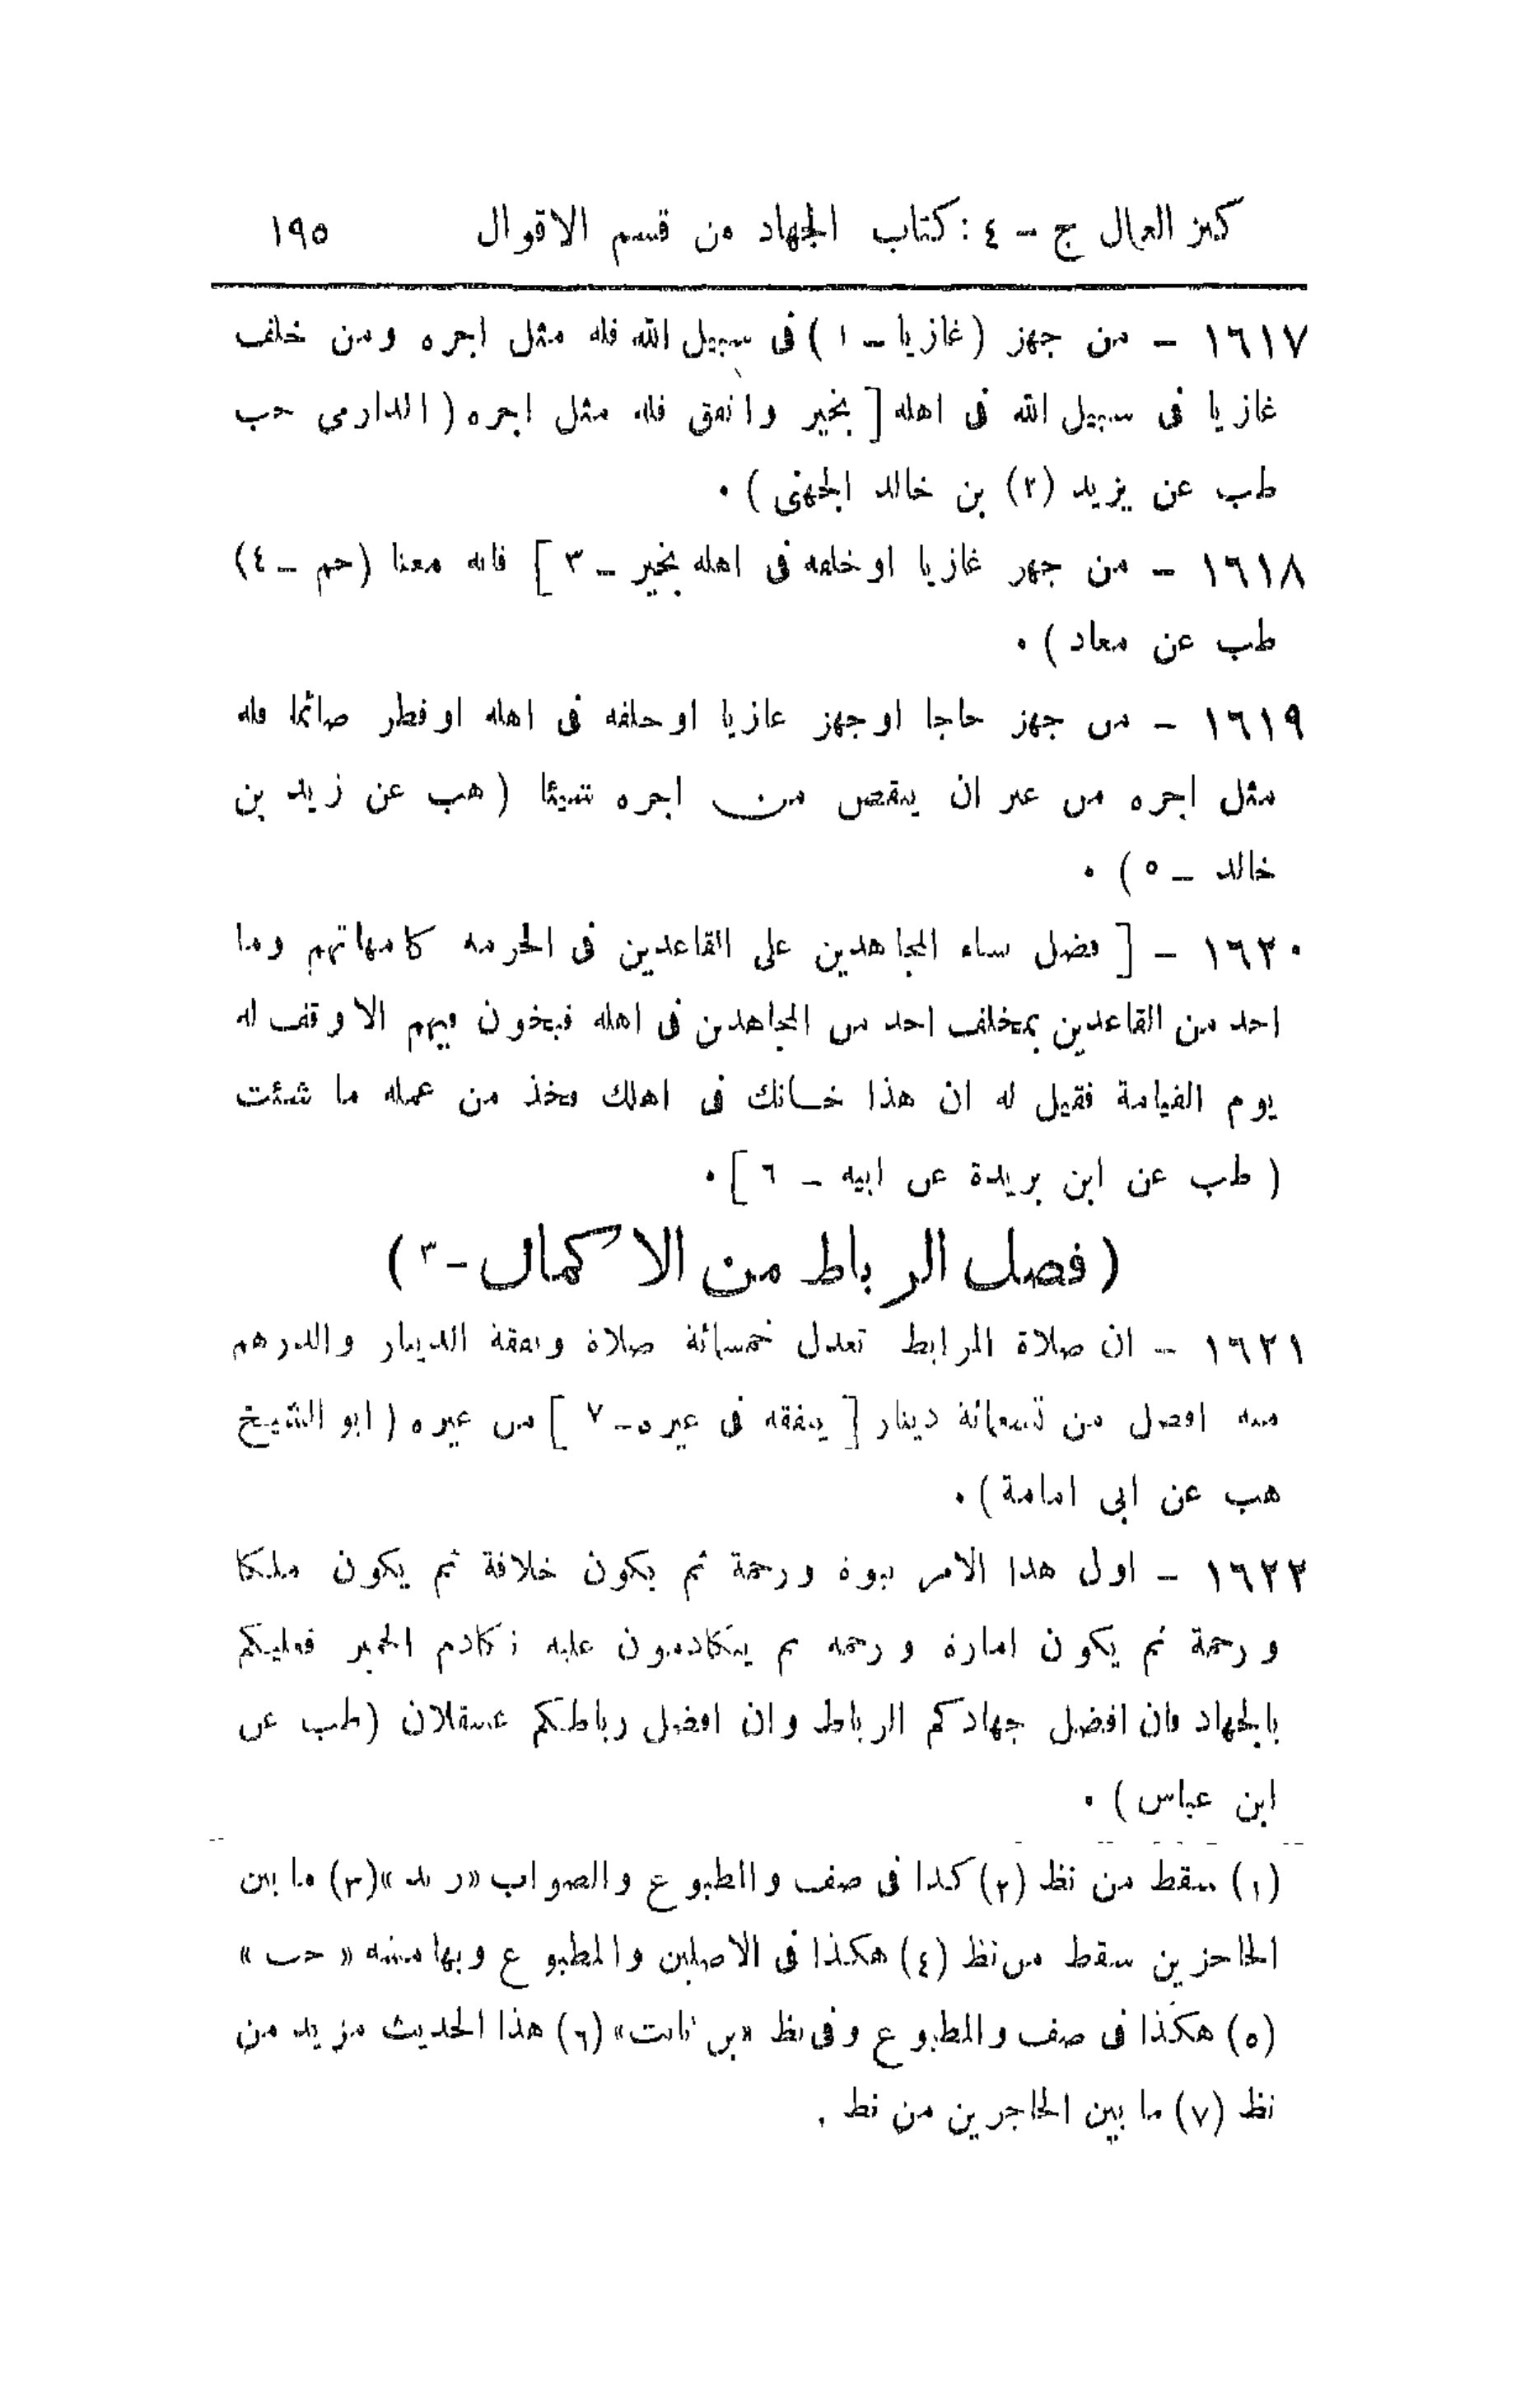 كنز العمال ج - ٤ : كتاب الجهاد من قسم الاقوال ١٩٥
١٦١٧ - من جهز (غازيا - ١) فى سبيل الله فله مثل اجره ومن خلف
غازيا فى سبيل الله فى اهله [ بخير وانفق فله مثل اجره (الدارمى حب
طب عن يزيد (٢) بن خالد الجهنى) ٠
١٦١٨ - من جهز غازيا او خلفه فى اهله بخير - ٣ ] فانه معنا (حم - ٤)
طب عن معاذ) ٠
١٦١٩ - من جهز حاجا او جهز غازيا او خلفه فى اهله او فطر صائما فله
مثل اجره من غير ان ينقص من اجره شيئا (هب عن زيد بن
خالد - ٥) ٠
١٦٢٠ - [ فضل نساء المجاهدين على القاعدين فى الحرمة كامهاتهم وما
احد من القاعدين يخلف احد من المجاهدين فى اهله فيخون فيهم الا وقف له
يوم القيامة فقيل له ان هذا خانك فى اهلك فخذ من عمله ما شئت
(طب عن ابن بريدة عن ابيه - ٦ ] ٠
(فصل الرباط من الاكمال - ٣)
١٦٢١ - ان صلاة المرابط تعدل خمسمائة صلاة ونفقة الدينار والدرهم
منه افضل من تسعمائة دينار [ ينفقه فى غيره - ٧ ] من غيره (ابو الشيخ
هب عن ابى امامة) ٠
١٦٢٢ - اول هذا الامر نبوة ورحمة ثم يكون خلافة ثم يكون ملكا
ورحمة ثم يكون امارة ورحمة ثم يتكادمون عليه تكادم الحمير فعليكم
بالجهاد فان افضل جهادكم الرباط وان افضل رباطكم عسقلان (طب عن
ابن عباس) ٠
(١) سقط من نظ (٢) كذا فى صف والمطبوع والصواب «زيد» (٣) ما بين
الحاجزين سقط من نظ (٤) هكذا فى الاصلين والمطبوع وبهامشه «حب»
(٥) هكذا فى صف والمطبوع وفى نظ «بن ثابت» (٦) هذا الحديث مزيد من
نظ (٧) ما بين الحاجزين من نظ .